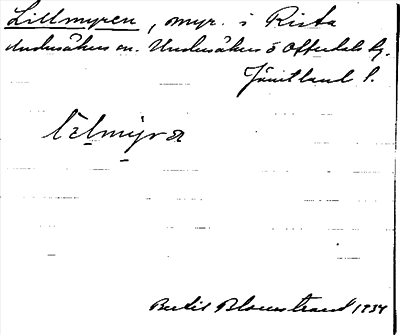 Lillmyren, myr. i Rista
Undersåkers sn. Undersåkers o Offerdals tg.
Jämtland l.
Bertil Blomstrand 1934